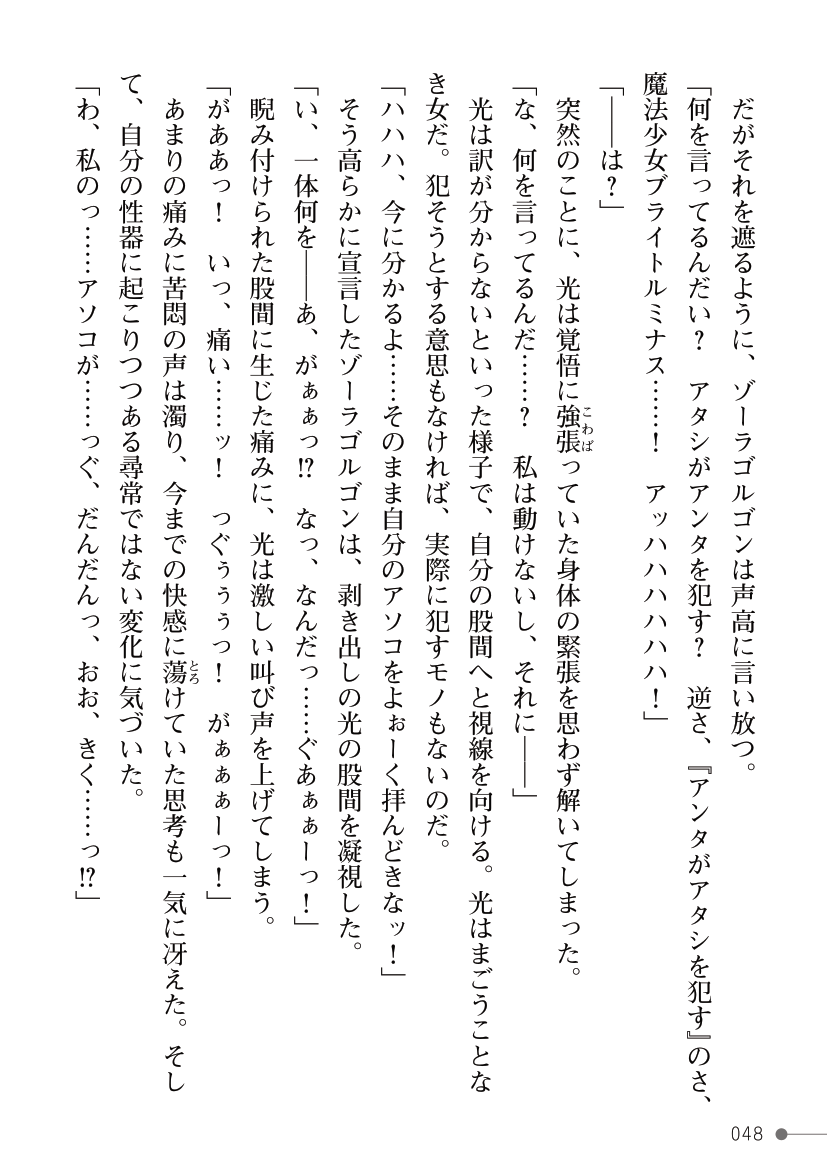 だがそれを遮るように、ゾーラゴルゴンは声高に言い放つ。
「何を言ってるんだい？　アタシがアンタを犯す？　逆さ、『アンタがアタシを犯す』のさ、
魔法少女ブライトルミナス……！　アッハハハハハハ！」
「――は？」
突然のことに、光は覚悟に強張こわばっていた身体の緊張を思わず解いてしまった。
「な、何を言ってるんだ……？　私は動けないし、それに――」
光は訳が分からないといった様子で、自分の股間へと視線を向ける。光はまごうことな
き女だ。犯そうとする意思もなければ、実際に犯すモノもないのだ。
「ハハハ、今に分かるよ……そのまま自分のアソコをよぉーく拝んどきなッ！」
そう高らかに宣言したゾーラゴルゴンは、剥き出しの光の股間を凝視した。
「い、一体何を――あ、がぁぁっ!?　なっ、なんだっ……ぐあぁぁーっ！」
睨み付けられた股間に生じた痛みに、光は激しい叫び声を上げてしまう。
「がああっ！　いっ、痛い……ッ！　っぐぅぅぅっ！　がぁぁぁーっ！」
あまりの痛みに苦悶の声は濁り、今までの快感に蕩とろけていた思考も一気に冴えた。そし
て、自分の性器に起こりつつある尋常ではない変化に気づいた。
「わ、私のっ……アソコが……っぐ、だんだんっ、おお、きく……っ!?」
048